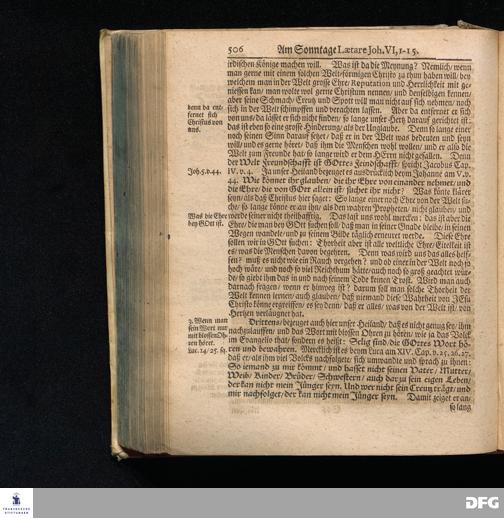 506 Am Sonntage Lætare Joh. VI, 1-15.
irdischen Könige machen will. Was ist da die Meynung? Nemlich/ wenn
man gerne mit einem solchen Welt-förmigen Christo zu thun haben will/ bey
welchem man in der Welt grosse Ehre/ Reputation und Herrlichkeit mit ge-
niessen kan/ man wolte wol gerne Christum nennen/ und denselbigen kennen/
aber seine Schmach/ Creutz und Spott will man nicht auf sich nehmen/ noch
sich in der Welt schimpffen und verachten lassen. Aber da entfernet er sich
von uns/ da lässet er sich nicht finden/ so lange unser Hertz darauf gerichtet ist:
das ist eben so eine grosse Hinderung/ als der Unglaube. Denn so lange einer
noch seinen Sinn darauf setzet/ daß er in der Welt was bedeuten und seyn
will/ und es gerne höret/ daß ihm die Menschen wohl wollen/ und er also die
Welt zum Freunde hat/ so lange wird er dem HErrn nicht gefallen. Denn
der Welt Freundschafft ist GOttes Feindschafft/ spricht Jacobus Cap.
IV. v. 4. Ja unser Heiland bezeuget es ausdrücklich beym Johanne am V. v.
44. Wie könnet ihr glauben/ die ihr Ehre von einander nehmet/ und
die Ehre/ die von GOtt allein ist/ suchet ihr nicht? Was könte klärer
seyn/ als daß Christus hier saget: So lange einer noch Ehre von der Welt su-
che/ so lange könne er an ihn/ als den wahren Propheten/ nicht glauben/ und
werde seiner nicht theilhafftig. Das last uns wohl mercken: das ist aber die
Ehre/ die man bey GOtt suchen soll/ daß man in seiner Gnade bleibe/ in seinen
Wegen wandele/ und zu seinem Bilde täglich erneuret werde. Diese Ehre
sollen wir in GOtt suchen: Thorheit aber ist alle weltliche Ehre/ Eitelkeit ist
es/ was die Menschen davon begehren. Denn was wird uns das alles helf-
fen? muß es nicht wie ein Rauch vergehen? und ob einer in der Welt noch so
hoch wäre/ und noch so viel Reichthum hätte/ auch noch so groß geachtet wür-
de/ so giebt ihm das in und nach seinem Tode keinen Trost. Wird man auch
darnach fragen/ wenn er hinweg ist? darum soll man solche Thorheit der
Welt kennen lernen/ auch glauben/ daß niemand diese Wahrheit von JEsu
Christo könne ergreiffen/ es sey denn/ daß er alles/ was von der Welt ist/ von
Hertzen verläugnet hat.
Drittens/ bezeuget auch hier unser Heiland/ daß es nicht genug sey/ ihm
nachzulauffen/ und das Wort mit blossen Ohren zu hören/ wie ja das Volck
im Evangelio that/ sondern es heisst: Selig sind/ die GOttes Wort hö-
ren und bewahren. Mercklich ist es beym Luca am XIV. Cap. v. 25. 26. 27.
daß er/ als ihm viel Volcks nachfolgete/ sich umwandte und sprach zu ihnen:
So iemand zu mir kömmt/ und hasset nicht seinen Vater/ Mutter/
Weib/ Kinder/ Brüder/ Schwestern/ auch darzu sein eigen Leben/
der kan nicht mein Jünger seyn. Und wer nicht sein Creutz trägt/ und
mir nachfolget/ der kan nicht mein Jünger seyn. Damit zeiget er an:
so lang
denn da ent-
fernet sich
Christus von
uns.
Joh. 5. v. 44.
Was die Ehre
bey GOtt ist.
3. Wenn man
sein Wort nur
mit blossen Oh-
ren höret.
Luc. 14/ 25. sq.
FRANCKESCHE
STIFTUNGEN
DFG